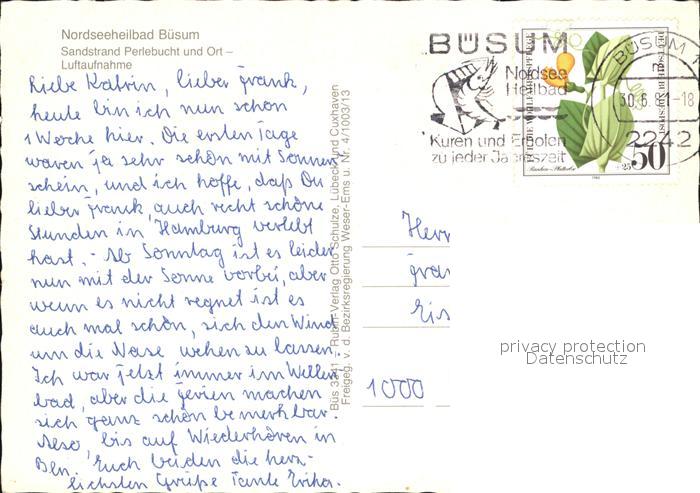 Nordseeheilbad Büsum
Sandstrand Perlebucht und Ort –
Luftaufnahme
Liebe Katrin, lieber Frank,
heute bin ich nun schon
1 Woche hier. Die ersten Tage
waren ja sehr schön mit Sonnen
schein, und ich hoffe, daß Du
lieber Frank, auch recht schöne
Stunden in Hamburg verlebt
hast. - Ab Sonntag ist es leider
nun mit der Sonne vorbei, aber
wenn es nicht regnet ist es
auch mal schön, sich den Wind
um die Nase wehen zu lassen.
Ich war jetzt immer im Wellen
bad, aber die Ferien machen
sich ganz schön bemerkbar.
Also, bis auf Wiederhören in
Bln. Euch beiden die herz-
lichsten Grüße Tante Erika.
Büs 3241 - Rubin-Verlag Otto Schulze, Lübeck und Cuxhaven
Freigeg. v. d. Bezirksregierung Weser-Ems u. Nr. 4/1003/13
BÜSUM
Nordsee
Heilbad
Kuren und Erholen
zu jeder Jahreszeit
BÜSUM 1
30.6.8 -18
2242
DEUTSCHE BUNDESPOST
50
+25
Herr
Fran
Eis
1000
privacy protection
Datenschutz